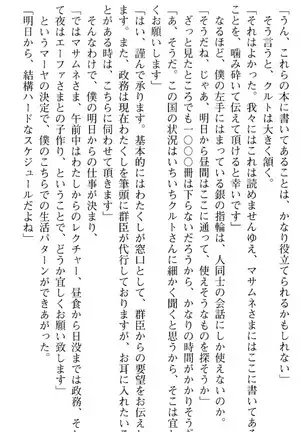 「うん、これらの本に書いてあることは、かなり役立てられるかもしれない」
「それはよかった。我々にはこれは読めませんゆえ、マサムネさまにはここに書いてある
ことを、噛み砕いて伝えて頂けると幸いです」
なるほど、僕の左手にはまっている銀の指輪は、人同士の会話にしか使えないのか。
「そうだね、じゃあ、明日から昼間はここに通って、使えそうなものを探そうか」
ざっと見たところでも一〇〇〇冊は下らないだろうから、かなりの時間がかかりそうだ
「あ、そうだ。この国の状況はいちいちクルトさんに細かく聞くと思うから、そこは宜し
くお願いします」
「はい、謹んで承ります。基本的にはわたくしが窓口として、群臣からの要望をお伝えし
ます。また、政務は現在わたくしを筆頭に群臣が代行しておりますが、お耳に入れたいこ
とがある時は、こちらに伺わせて頂きます」
そんなわけで、僕の明日からの仕事が決まり、
「ではマサムネさま、午前中はわたしからのレクチャー、昼食から日没までは政務、そし
て夜はエーファさまとの子作り、ということで、どうか宜しくお願い致します」
というマーヤの決定で、僕のこちらでの生活パターンができあがった。
「明日から、結構ハードなスケジュールだよね」
と言うと、クルトは大きく頷く。